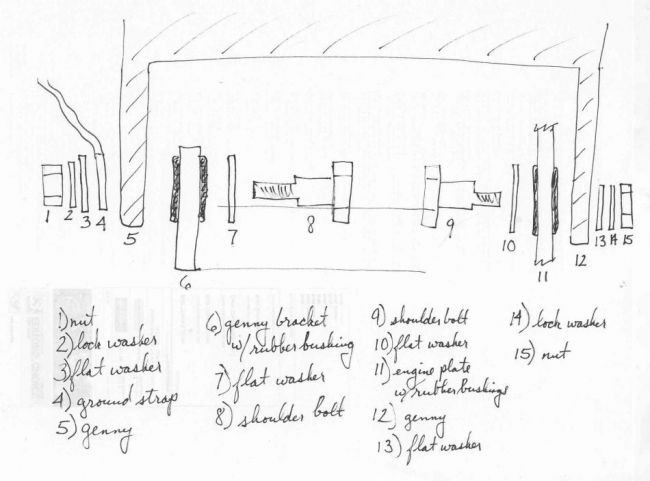 1 2 3 4 5 6 7 8 9 10 11 12 13 14 15
1) nut
2) lock washer
3) flat washer
4) ground strap
5) genny
6) genny bracket
w/rubber bushing
7) flat washer
8) shoulder bolt
9) shoulder bolt
10) flat washer
11) engine plate
w/rubber bushings
12) genny
13) flat washer
14) lock washer
15) nut